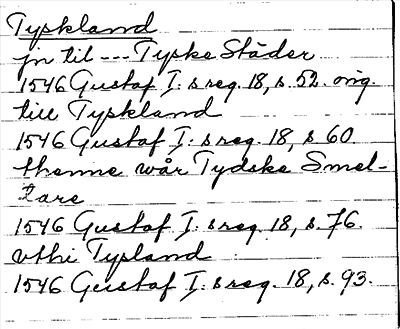 Tyskland
jn til --- Tyske Städer
1546 Gustaf I:s reg. 18, s. 52. orig.
till Tyskland
1546 Gustaf I:s reg. 18, s 60.
thenne wår Tydske Smel-
tare
1546 Gustaf I:s reg. 18, s. 76.
vthi Tysland
1546 Gustaf I:s reg. 18, s. 93.